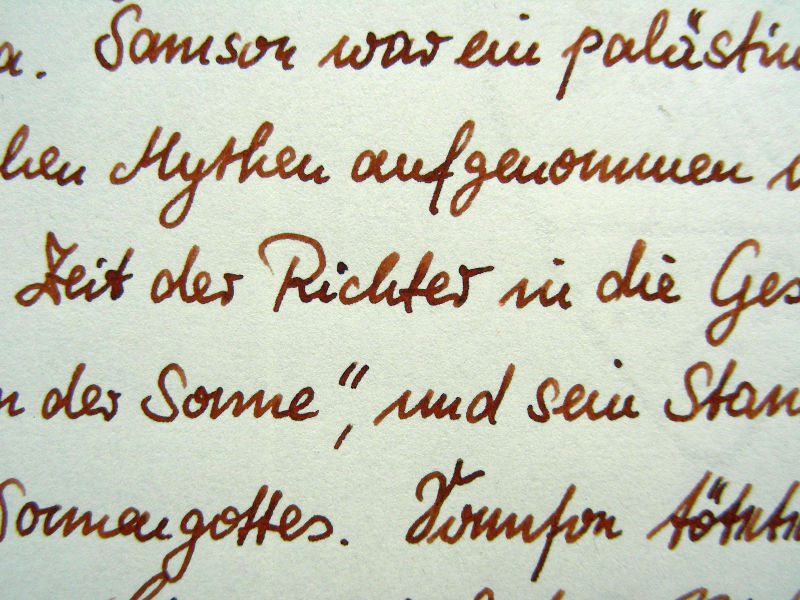 a. Samson war ein palästin
hen Mythen aufgenommen
Zeit der Richter in die Ges
n der Sonne", und sein Stan
Sonnengottes.